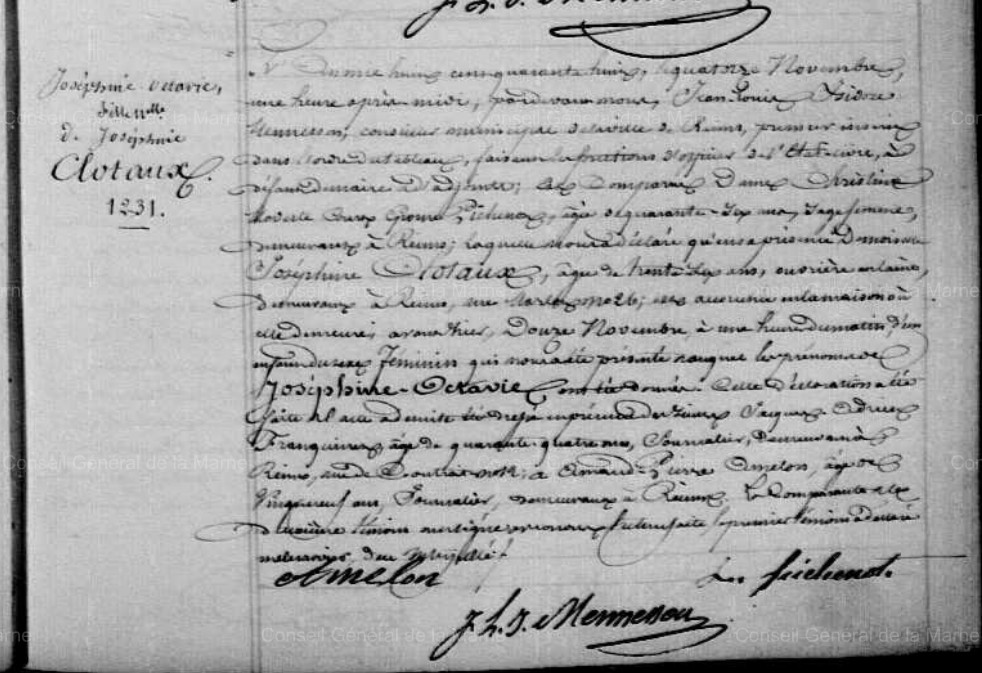 Joséphine Octavie,
fille n.elle
de Joséphine
Clotaux.
1231.
L'an mil huit cent quarante huit, le quatorze Novembre,
une heure après midi, pardevant nous, Jean Louis Isidore
Mennesson, conseiller municipal de la ville de Reims, premier inscrit
dans l'ordre du tableau, faisant les fonctions d'officier de l'Etat-civil, à
défaut de maire et d'adjoints; est comparue Dame Christine
épouse Pichenot, âgée de quarante-six ans, sage femme,
demeurant à Reims; laquelle nous a déclaré qu'en sa présence Demoiselle
Joséphine Clotaux, âgée de trente ans, ouvrière en laine,
demeurant à Reims, rue No 26; est accouchée en la maison où
elle demeure, avant hier, Douze Novembre, à une heure du matin, d'un
enfant du sexe féminin qui nous a été présenté et auquel les prénoms de
Joséphine-Octavie ont été donnés. Cette déclaration a été
faite et l'acte de suite dressé en présence des sieurs Jacques
âgé de quarante-quatre ans, Journalier, demeurant à
Reims, rue de Contrai No 12; et Amand-Pierre Amelon, âgé de
Vingt neuf ans, Journalier, demeurant à Reims. La Comparante et le
deuxième témoin ont signé avec nous lecture faite, le premier témoin a déclaré
ne savoir, de ce interpellé.
Amelon
Pichenot.
J. L. I. Mennesson
Conseil Général de la Marne